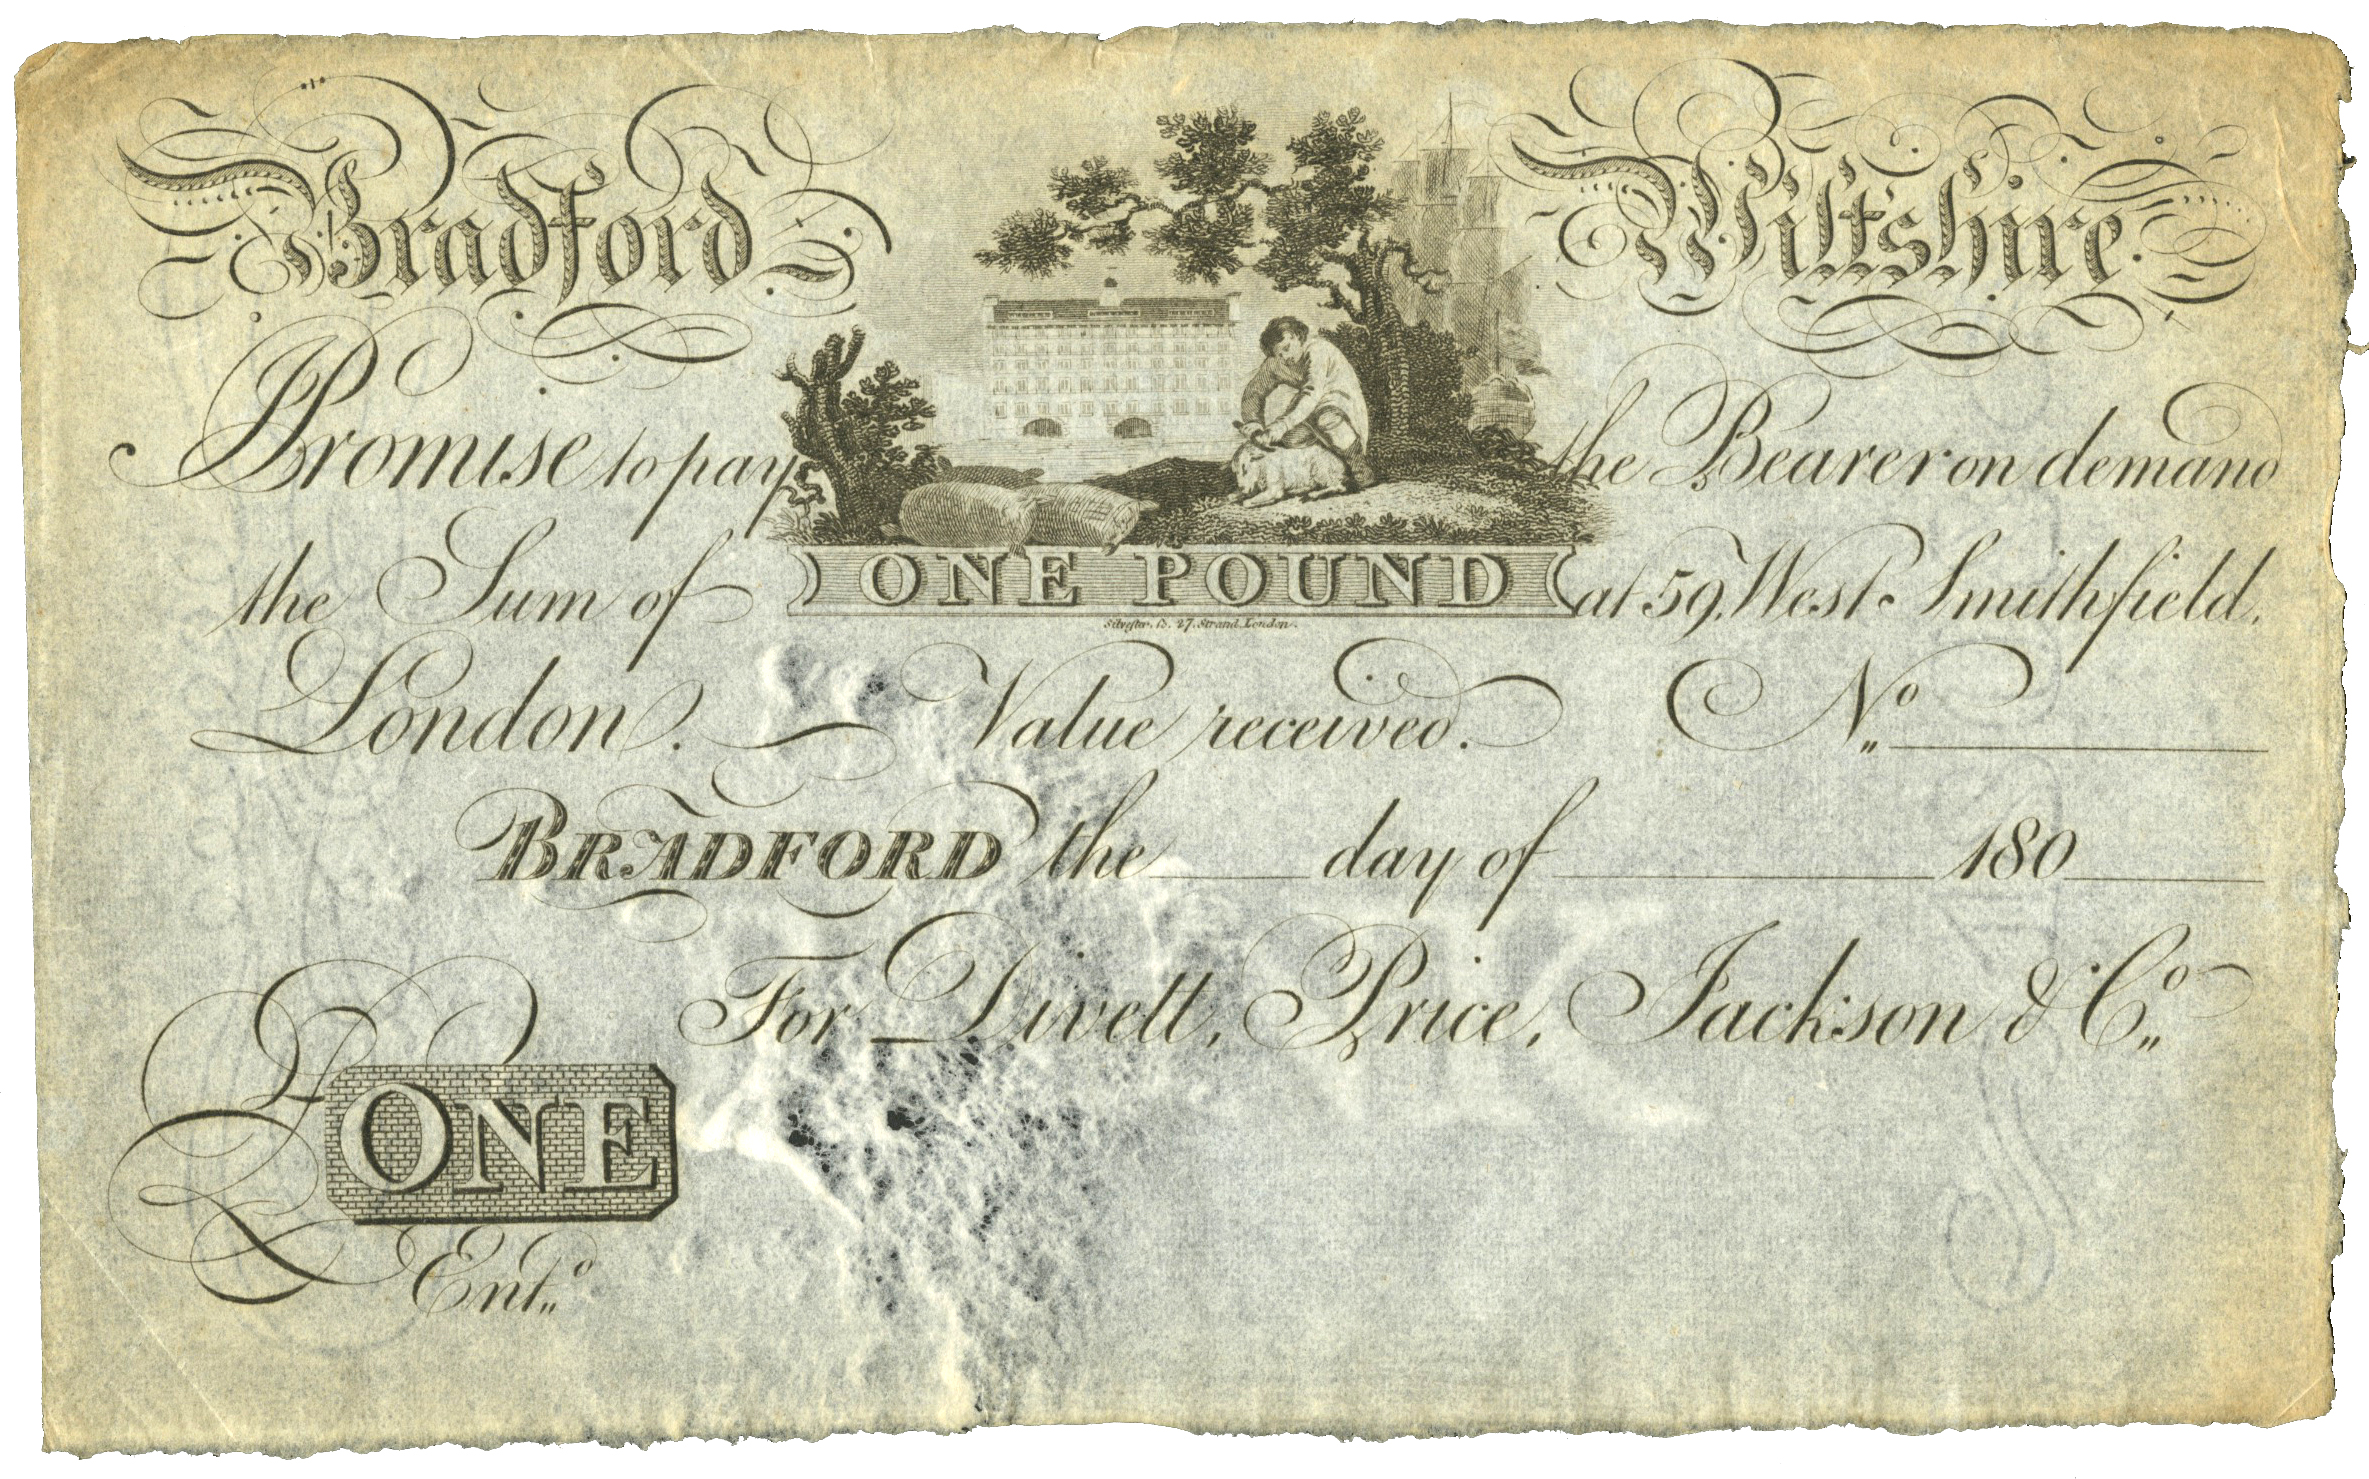 Bradford Wiltshire.
I Promise to pay the Bearer on demand
the Sum of ONE POUND at 59, West Smithfield,
Silvester. Sc. 27, Strand, London.
London. Value received. No.
BRADFORD the day of 180
For Divett, Price, Jackson & Co.
£ ONE
Entd.